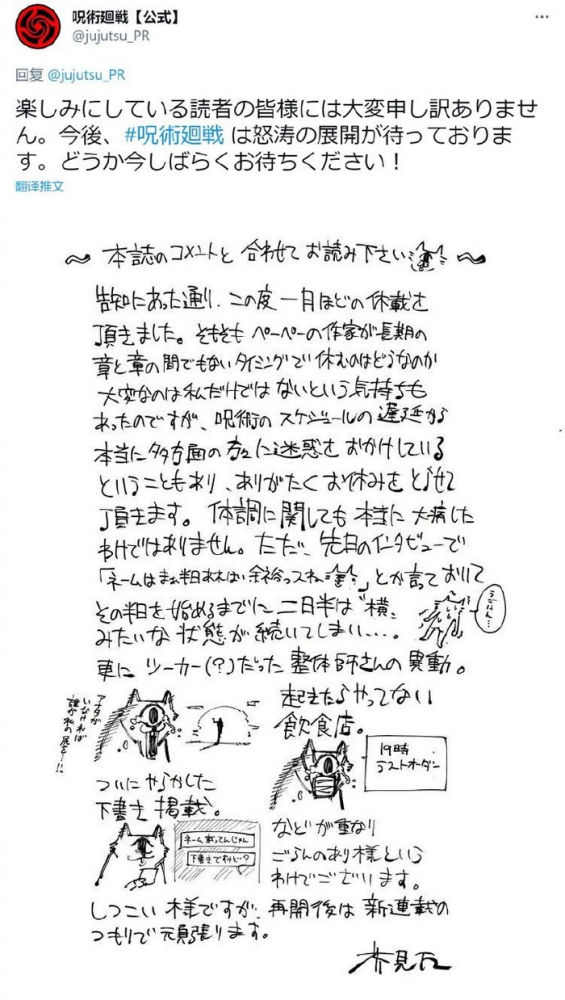 呪術廻戦【公式】
@jujutsu_PR
回复 @jujutsu_PR
楽しみにしている読者の皆様には大変申し訳ありませ
ん。今後、#呪術廻戦 は怒涛の展開が待っておりま
す。どうか今しばらくお待ちください！
翻译推文
〜 本誌のコメントと 合わせて お読み下さい 〜
告知にあった通り、この度一月ほどの休載を
頂きました。そもそも ペーペーの作家が長期の
章と章の間でもないタイミングで休むのはどうなのか
大変なのは私だけでは ないという気持ちも
あったのですが、呪術の スケジュールの 遅延から
本当に多方面の方々に迷惑を おかけしている
ということもあり、ありがたくお休みを とらせて
頂きます。体調に関しても 本当に 大病した
わけではありません。ただ、先日のインタビューで
「ネームはまぁ半日あれば余裕っスね」とか言っておいて
その半日を始めるまでに 二日半は"横"
みたいな 状態が続いてしまい…。
うごけん…
更に ツーカー(?)だった 整体師さんの 異動。
アナタが
いなければ
誰が私の尻を…!?
起きたらやってない
飲食店。
19時
ラストオーダー
ついに やらかした
下書き 掲載。
ネーム載ってんじゃん
下書きですけど?
などが重なり
ごらんのあり様という
わけでございます。
しつこい 様ですが、再開後は 新連載の
つもりで頑張ります。
芥見下々